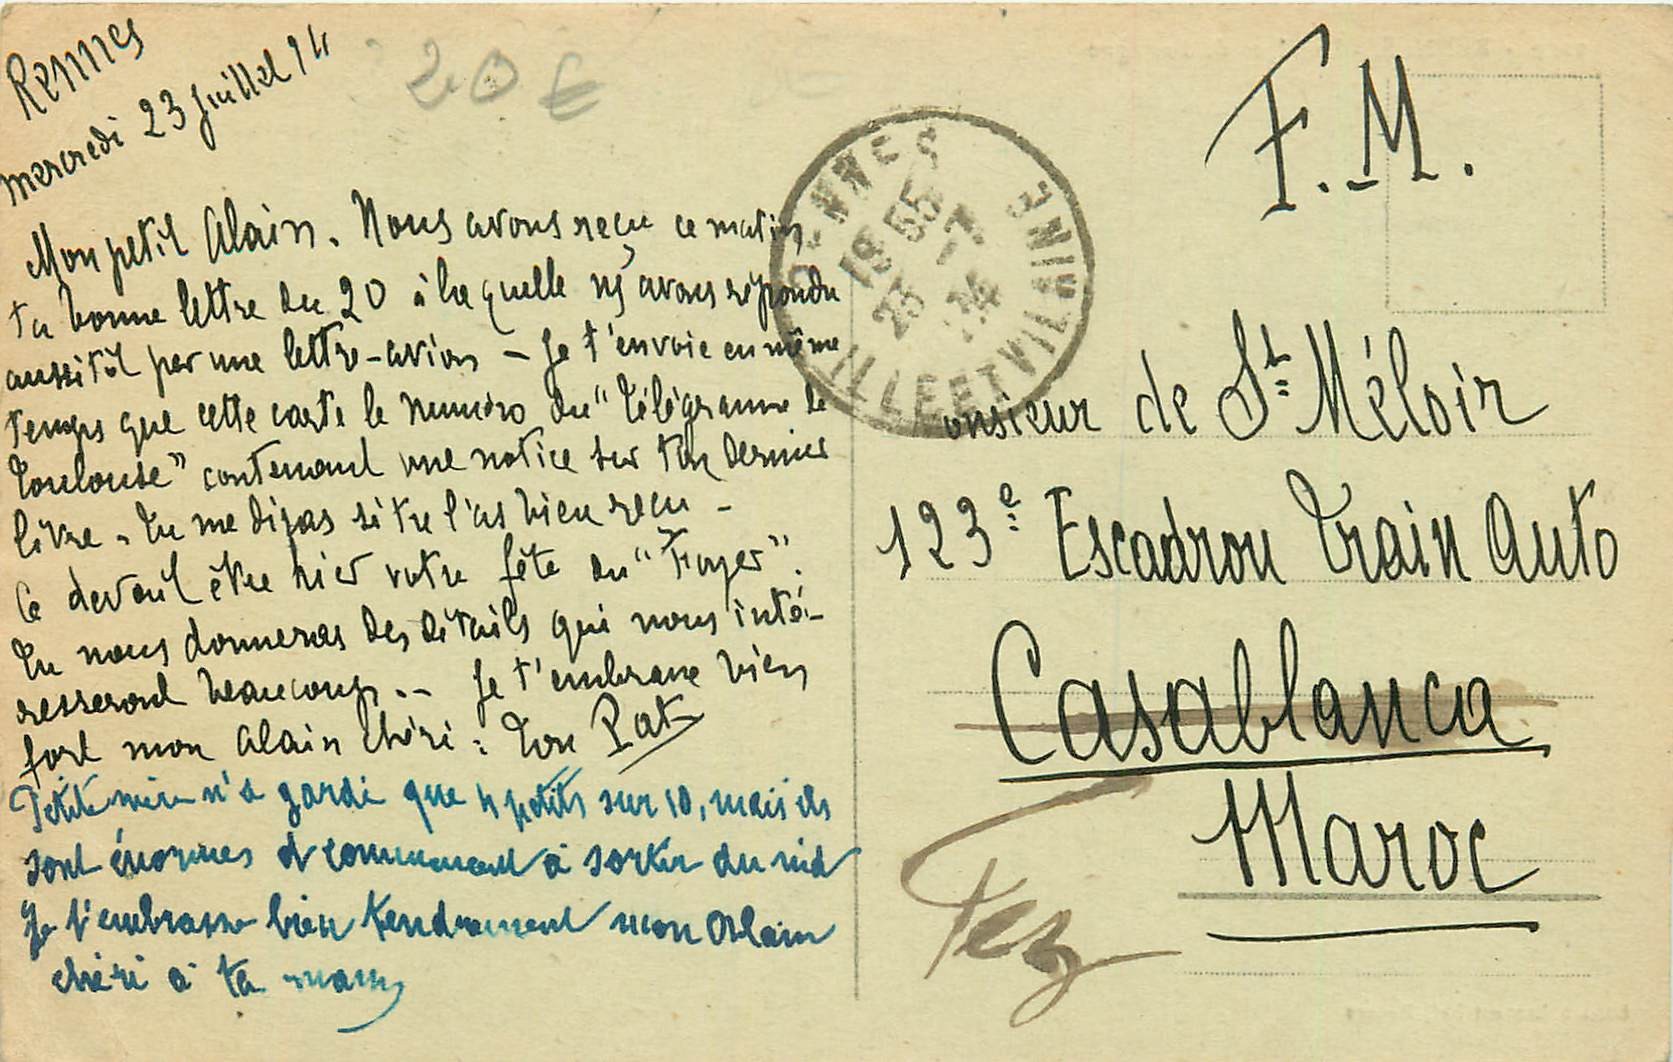 Rennes
mercredi 23 juillet 24
20 €
Mon petit Alain. Nous avons reçu ce matin
ta bonne lettre du 20 à laquelle ns avons répondu
aussitôt par une lettre-avion – Je t'envoie en même
temps que cette carte le numéro du "Télégramme de
Toulouse" contenant une notice sur ton dernier
livre. Tu me diras si tu l'as bien reçu –
Ce devait être hier votre fête du "Foyer".
Tu nous donneras des détails qui nous inté-
resseront beaucoup. – Je t'embrasse bien
fort mon Alain chéri : Ton Pat
Petite mère n'a gardé que 4 petits sur 10, mais ils
sont énormes et commencent à sortir du nid
Je t'embrasse bien tendrement mon Alain
chéri à ta
RENNES
18 55
23 -7
24
ILLE ET VILAINE
F.M.
onsieur de St Méloir
123e Escadron Train Auto
Casablanca
Maroc
Fez